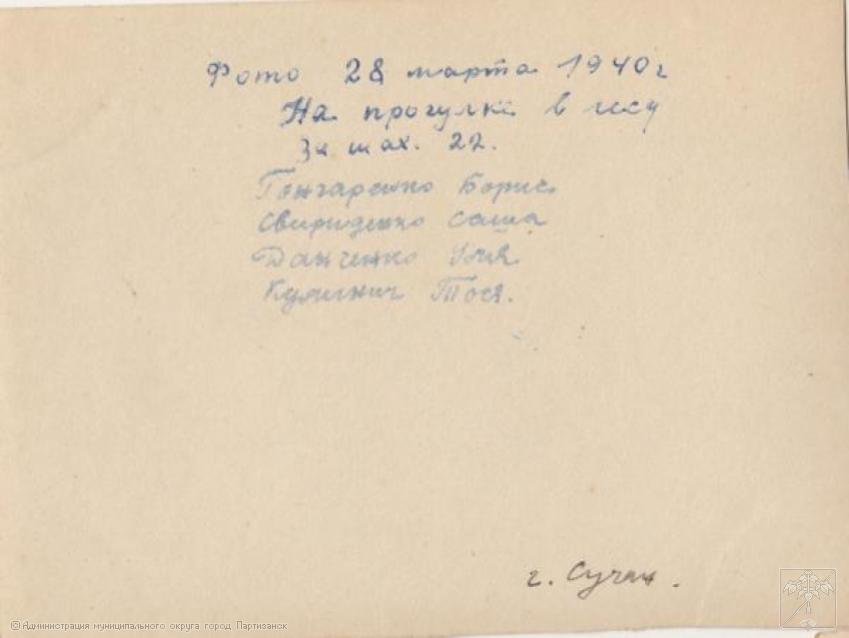 Фото 28 марта 1940 г
На прогулке в лесу
За шах. 22.
Гончаренко Борис
Свириденко Саша
Данченко
Тося.
г. Сучан.
© Администрация муниципального округа город Партизанск